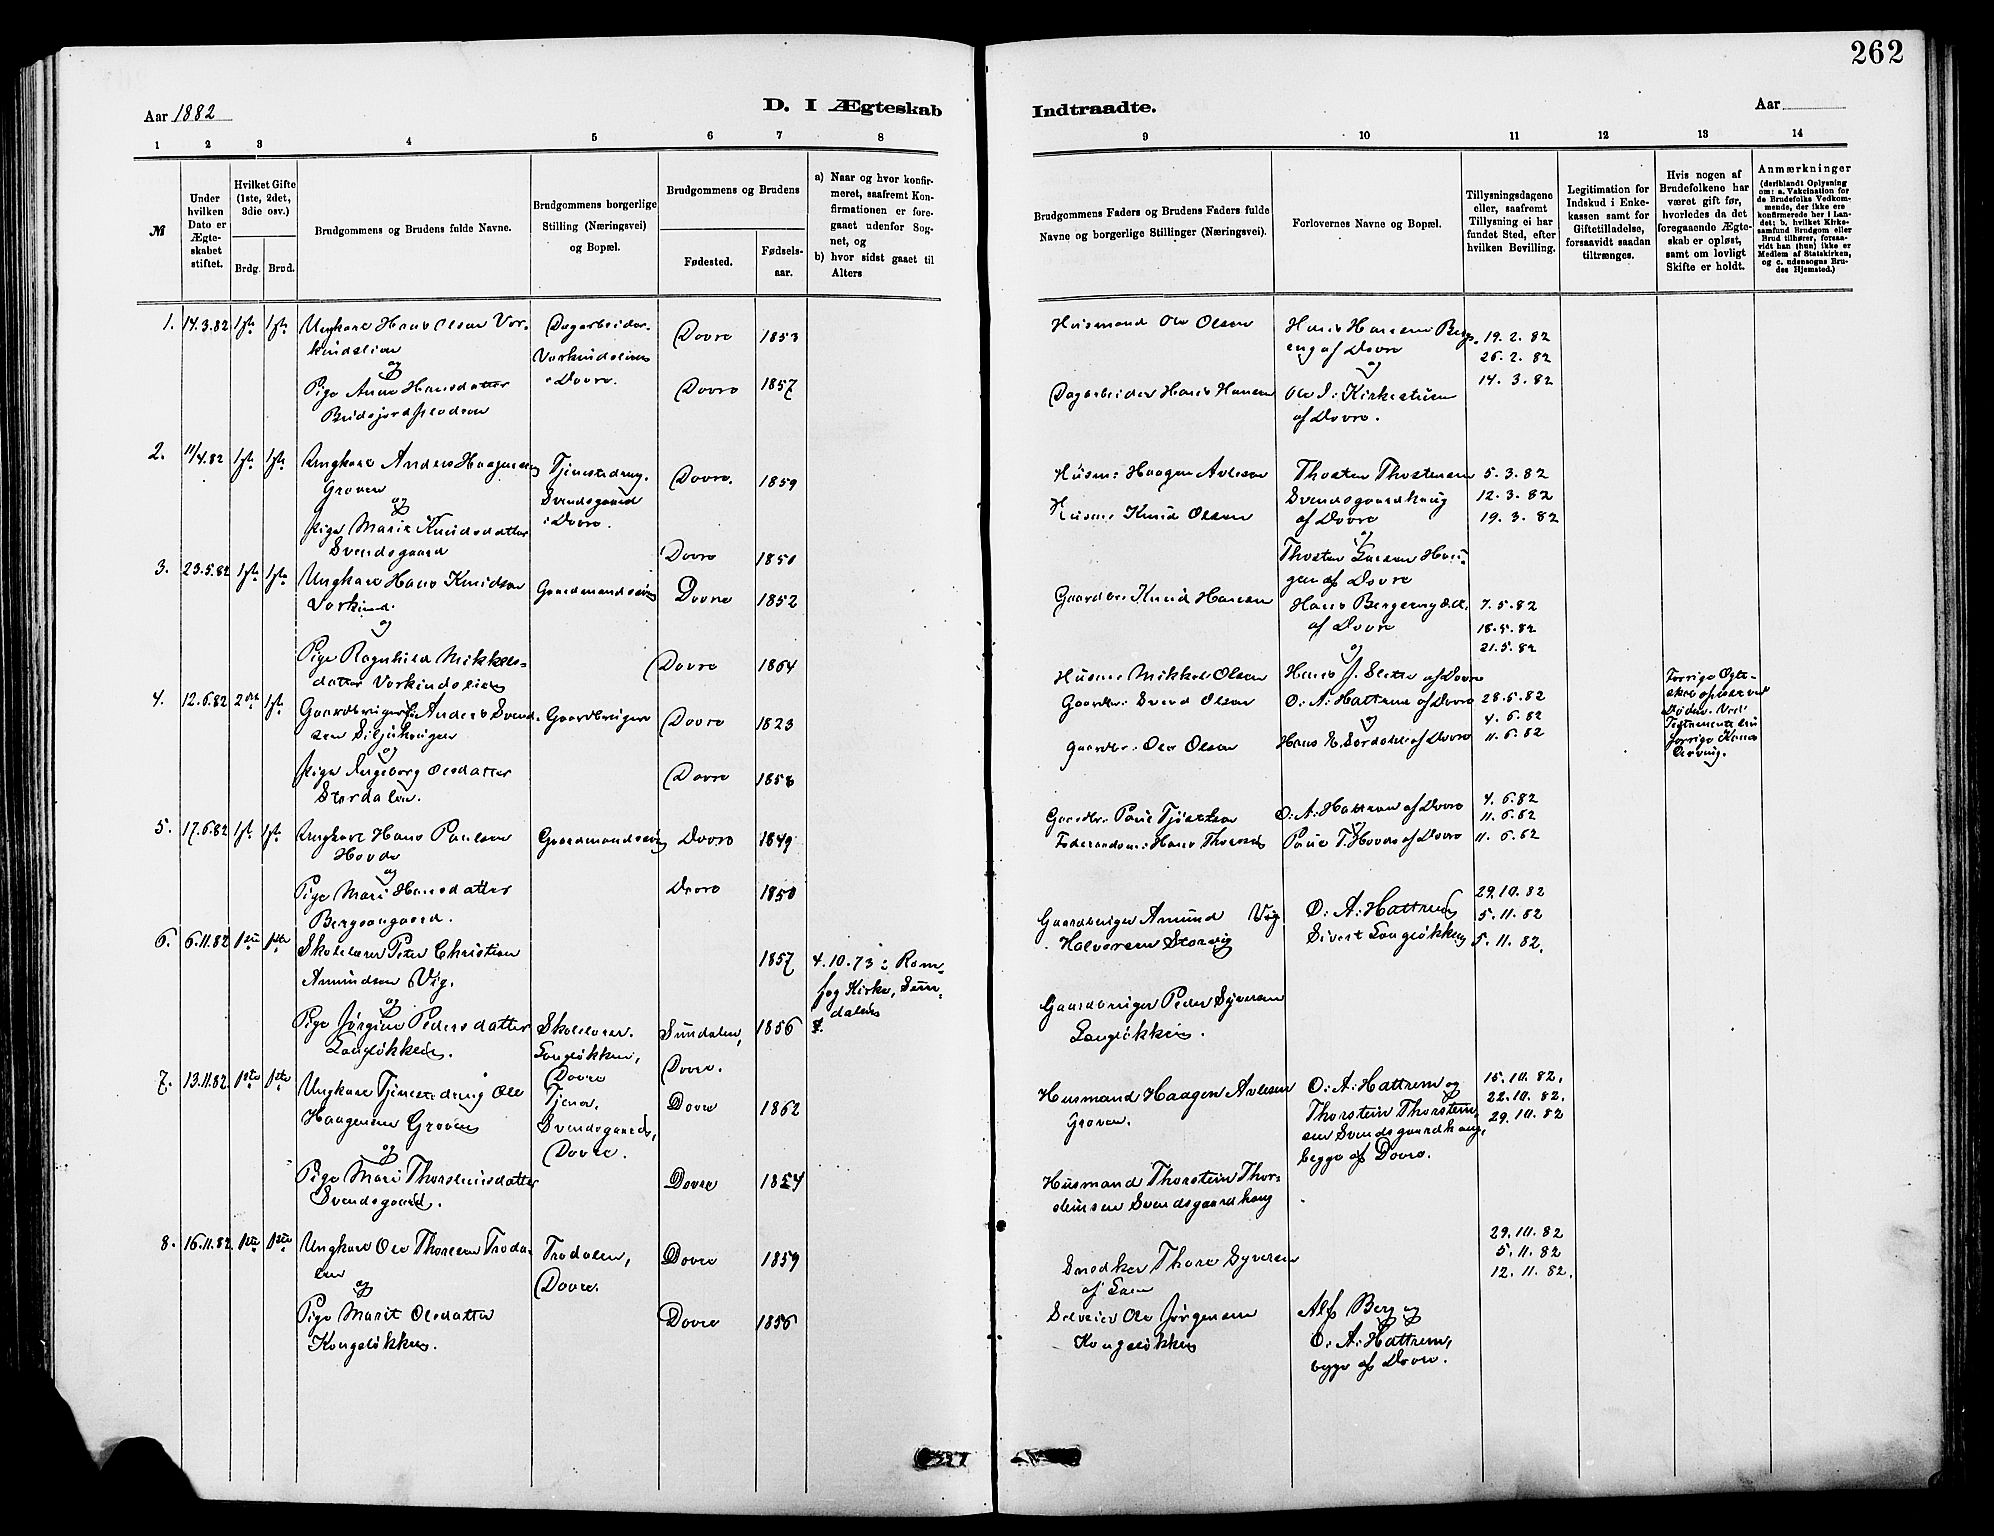 262
Aar 1882
D. I Ægteskab
Indtraadte.
Aar
1
2
3
4
5
6
7
8
9
10
11
12
13
14
№
Under
hvilken
Dato er
Ægte-
skabet
stiftet.
Hvilket Gifte
(1ste, 2det,
3die osv.)
Brdg.
Brud.
Brudgommens og Brudens fulde Navne.
Brudgommens borgerlige
Stilling (Næringsvei)
og Bopæl.
Brudgommens og Brudens
Fødested.
Fødsels-
aar.
a) Naar og hvor konfir-
meret, saafremt Kon-
firmationen er fore-
gaaet udenfor Sog-
net, og
b) hvor sidst gaaet til
Alters
Brudgommens Faders og Brudens Faders fulde
Navne og borgerlige Stillinger (Næringsvei).
Forlovernes Navne og Bopæl.
Tillysningsdagene
eller, saafremt
Tillysning ei har
fundet Sted, efter
hvilken Bevilling.
Legitimation for
Indskud i Enke-
kassen samt for
Giftetilladelse,
forsaavidt saadan
tiltrænges.
Hvis nogen af
Brudefolkene har
været gift før,
hvorledes da det
foregaaende Ægte-
skab er opløst,
samt om lovligt
Skifte er holdt.
Anmærkninger
(deriblandt Oplysning
om: a. Vakcination for
de Brudefolks Vedkom-
mende, der ikke ere
konfirmerede her i Lan-
det; b. hvilket Kirke-
samfund Brudgom eller
Brud tilhører, forsaa-
vidt han (hun) ikke er
Medlem af Statskirken,
og c. udensogns Bru-
des Hjemsted.)
1. 14.3.82 1ste 1ste
Ungkarl Hans Olsen Vor-
kindslien
og
Pige Anne Hansdatter
Dagarbeider.
Vorkindslien
i Dovre.
Dovre 1853
Dovre 1857
Husmand Ole Olsen
Dagarbeider Hans Hansen
Hans Hansen Berg-
eng af Dovre
og
Ole I: Kirkestuen
af Dovre.
19. 2. 82
26. 2. 82
14. 3. 82
2. 11/4.82 1ste 1ste
Ungkarl Anders Haagensen
Groven
og
Pige Marie Knudsdatter
Svendsgaard
Tjenestedreng.
Svendsgaard
i Dovre.
Dovre. 1859
Dovre 1850
Husm: Haagen Avlesen
Husm: Knud Olsen
Thosten Thostensen
Svendsgaardhaug
af Dovre
og
Thosten Larsen Hau-
gen af Dovre
5. 3. 82
12. 3. 82
19. 3. 82
3. 23.5.82 1ste 1ste
Ungkarl Hans Knudsen
Vorkind.
og
Pige Ragnhild Mikkels-
datter Vorkindslien
Gaardmandssøn
Dovre 1852
Dovre 1864
Gaardbr: Knud Hansen
Husm: Mikkel Olsen
af Dovre
og
7. 5. 82
18. 5. 82
21. 5. 82
4. 12.6.82 2det 1ste
Gaardbruger Anders Svend-
sen
og
Pige Ingeborg Olsdatter
Stordalen.
Gaardbruger
Dovre 1823
Dovre 1858
Gaardbr: Svend Olsen
Gaardbr: Ole Olsen
O: A: Hattrem af Dovre
og
28. 5. 82
4. 6. 82
11. 6. 82
5. 17.6.82 1ste 1ste
Ungkarl Hans Paulsen
Hovde
og
Pige Mari Hansdatter
Bergsangaard.
Gaardmandssøn
Dovre 1849
Dovre 1850
O: A: Hattrem af Dovre
og
Paul T. Hovde af Dovre
4. 6. 82
11. 6. 82
11. 6. 82
6. 6.11.82 1ste 1ste
Skolelærer Peter Christian
Amundsen Vig.
og
Pige Jørgine Pedersdatter
Langløkken.
Skolelærer.
Langløkken,
Dovre
Sundalen,
Dovre.
1857
1856
4.10.73 i Rom-
fog Kirke, Sun-
dalen
Gaardbruger Amund Vig
Halvorsen Storvig
Gaardbruger Peder Syversen
Langløkken.
O: A: Hattrem
Sivert Langløkken
29. 10. 82
5. 11. 82
5. 11. 82.
7. 13.11.82 1ste 1ste
Ungkarl Tjenestedreng Ole
Haagensen Groven
og
Pige Mari Thorsteinsdatter
Svendsgaard.
Tjener.
Svendsgaard,
Dovre.
Dovre 1862
Dovre 1854
Husmand Haagen Avlesen
Groven.
Husmand Thorstein Thor-
steinsen Svendsgaardhaug
O: A: Hattrem og
Thorstein Thorstein-
sen Svendsgaardhaug,
begge af Dovre.
15. 10. 82.
22. 10. 82.
29. 10. 82
8. 16.11.82. 1ste 1ste
Ungkarl Ole Thoresen Troda-
len
og
Pige Marit Olsdatter
Kongsløkken.
Trodalen,
Dovre.
Dovre 1859
Dovre 1856
Snedker Thore Syversen
Selveier Ole Jørgensen
Kongsløkken
Alf Berg og
O: A: Hattrem,
begge af Dovre.
29. 10. 82
5. 11. 82
12. 11. 82.